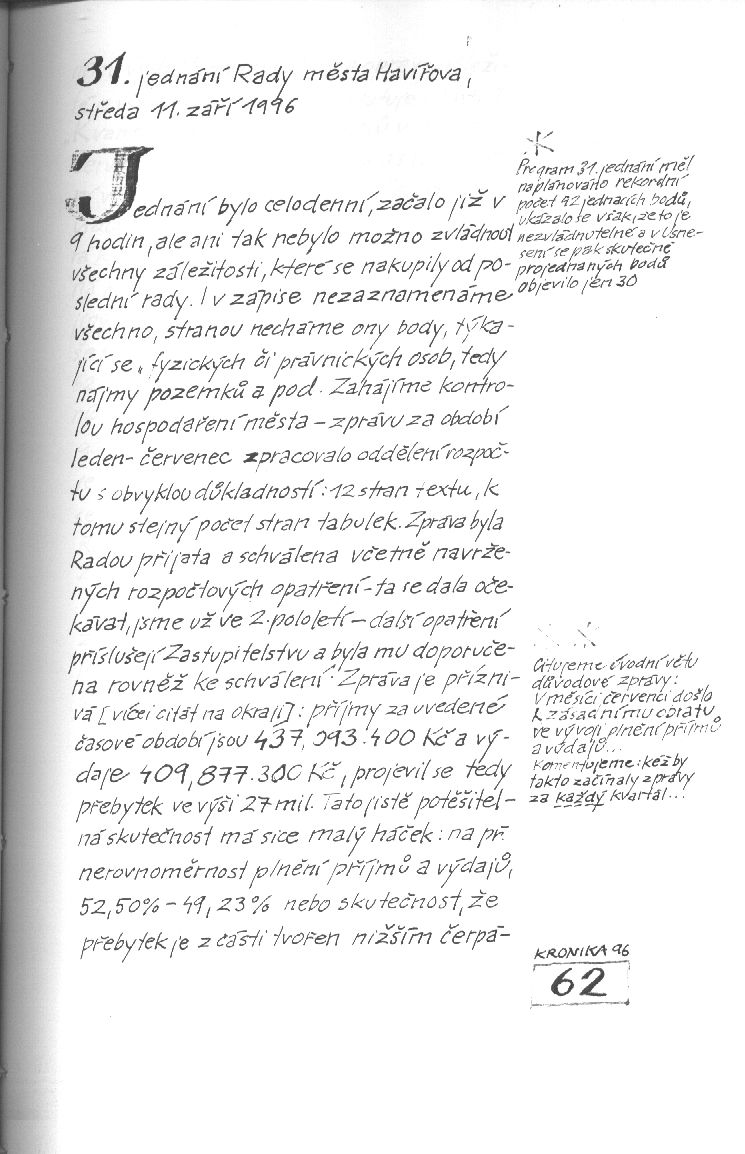 31. jednání Rady města Havířova,
středa 11. září 1996
Jednání bylo celodenní, začalo již v
9 hodin, ale ani tak nebylo možno zvládnout
všechny záležitosti, které se nakupily od po-
slední rady. I v zápise nezaznamenáme
všechno, stranou necháme ony body, týka-
jící se „ fyzických či právnických osob, tedy
nájmy pozemků a pod. Zahájíme kontro-
lou hospodaření města – zprávu za období
leden- červenec zpracovalo oddělení rozpoč-
tu s obvyklou důkladností: 12 stran textu, k
tomu stejný počet stran tabulek. Zpráva byla
Radou přijata a schválena včetně navrže-
ných rozpočtových opatření - ta se dala oče-
kávat, jsme už ve 2. pololetí – další opatření
příslušejí Zastupitelstvu a byla mu doporuče-
na rovněž ke schválení. Zpráva je přízni-
vá [vícei citát na okraji]: příjmy za uvedené
časové období jsou 437, 093.400 Kč a vý-
daje 409, 877.300 Kč, projevil se tedy
přebytek ve výši 27 mil. Tato jistě potěšitel-
ná skutečnost má sice malý háček: na př.
nerovnoměrnost plnění příjmů a výdajů,
52,50% – 49,23% nebo skutečnost, že
přebytek je z části tvořen nižším čerpá-
Program 31. jednání měl
naplánováno rekordní
počet 92 jednacích bodů,
ukázalo se však, že to je
nezvládnutelné a v Usne-
sení se pak skutečně
projednaných bodů
objevilo jen 30
Citujeme úvodní větu
důvodové zprávy:
V měsíci červenci došlo
k zásadnímu obratu
ve vývoji plnění příjmů
a výdajů...
Komentujeme: kéž by
takto začínaly zprávy
za každý kvartál...
KRONIKA 96
62